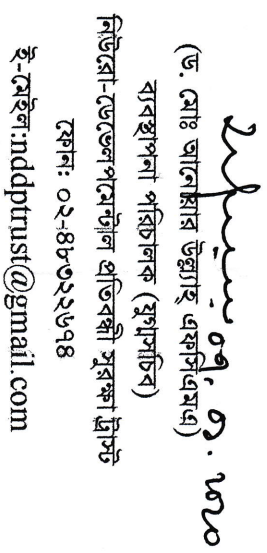 (ড. মোঃ আনোয়ার উল্ল্যাহ্ এফসিএমএ)
ব্যবস্থাপনা পরিচালক (যুগ্মসচিব)
নিউরো-ডেভেলপমেন্টাল প্রতিবন্ধী সুরক্ষা ট্রাস্ট
ফোন:
ই-মেইল:nddptrust@gmail.com